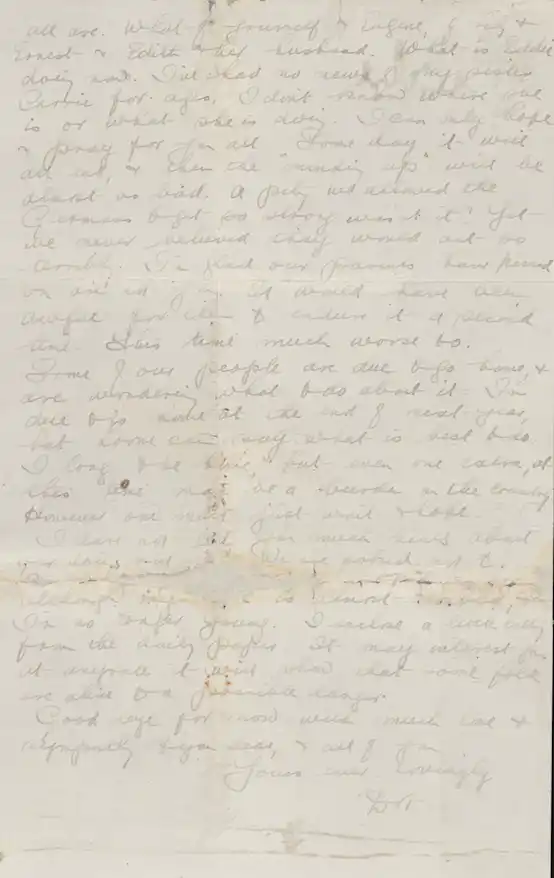 all are. What of yourself & Eugene, &
Ernest & Edith & her husband. What is Eddie
doing now. I've had no news of my sister
Carrie for ages. I don't know where she
is or what she is doing. I can only hope
& pray for you all. Some day it will
all end, & then the "winding up" will be
almost as bad. A pity we allowed the
Germans to get so strong wasn't it! Yet
we never believed they would act so
I'm glad our parents have passed
on and not it would have been
awful for them to endure it a second
time. This time much worse too.
Some of our people are due to go home, &
are wondering what to do about it. I'm
due to go home at the end of next year,
but none can say what is best to do.
I long to be there, but even one extra, at
this time may be a burden on the country
However one must just wait & hope
I have not much news about
our We are not to
although it is almost
I'm no longer young. I enclose a
from the daily paper. It may interest you
at anyrate it will show that some folk
are alive to a possible danger.
Good bye for now with much love &
sympathy to you dear, & all of you
Yours ever lovingly
Dot